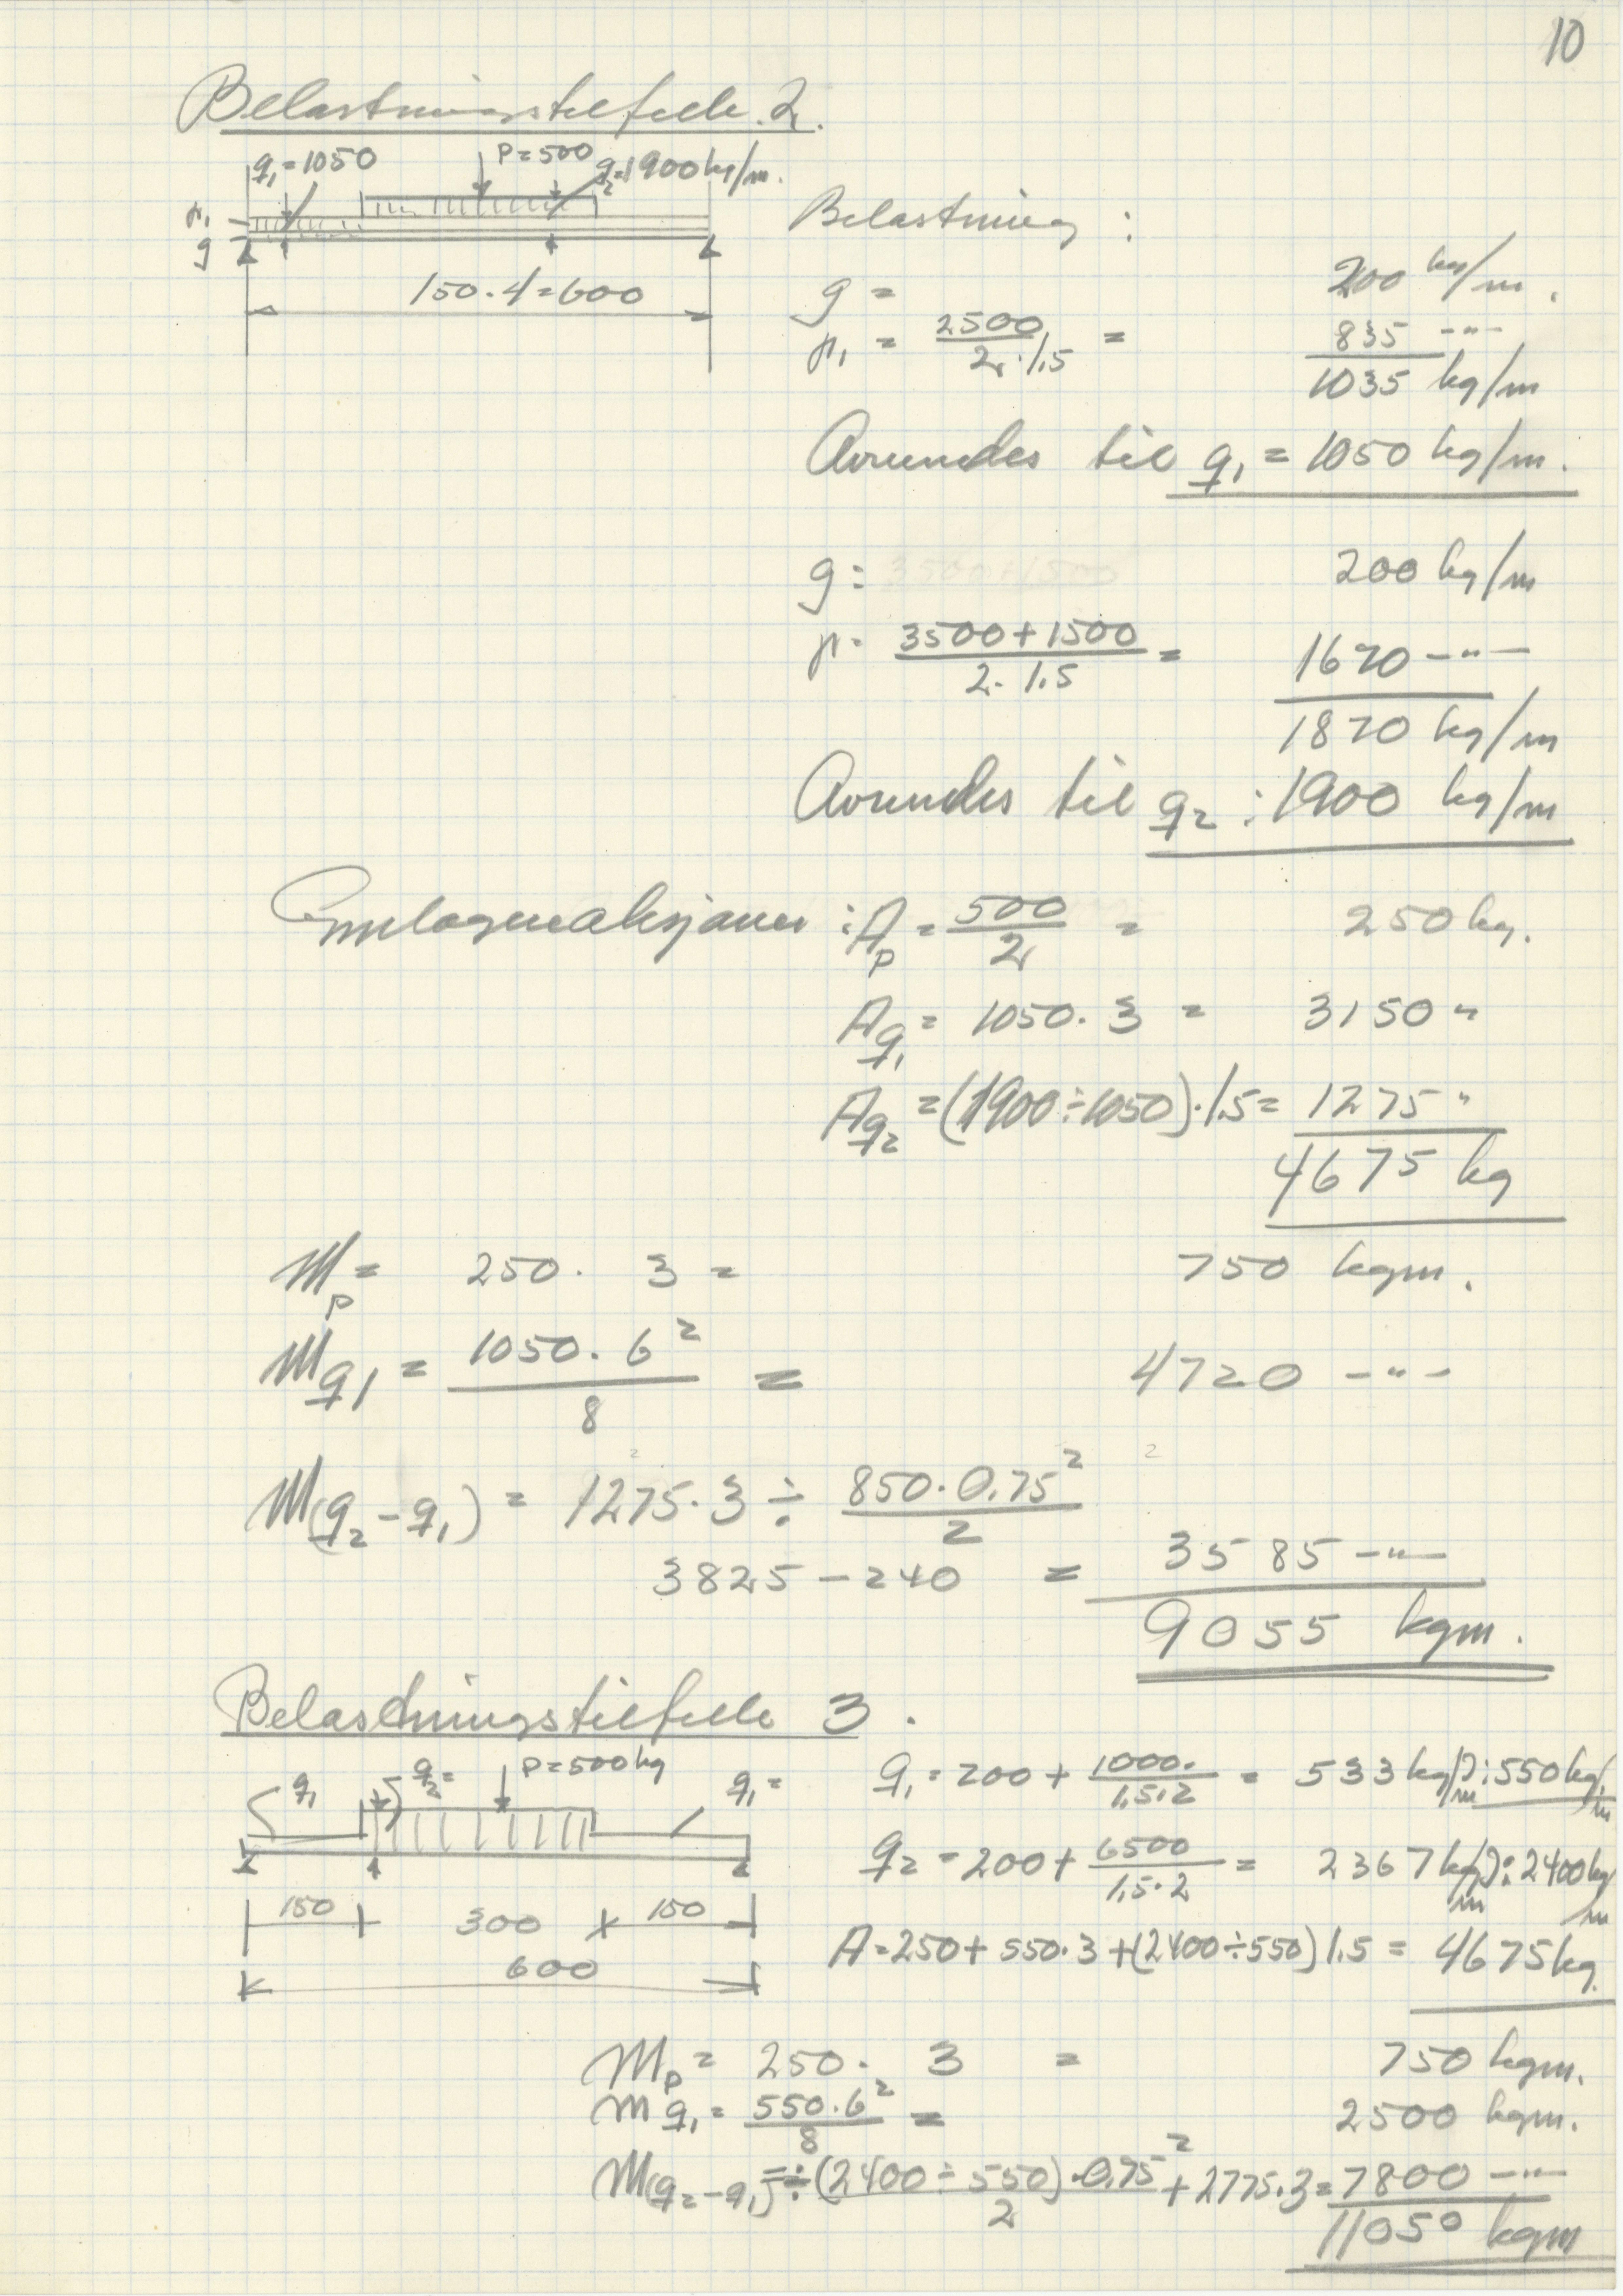 10
Belastningstilfelle 2.
q₁ = 1050 P = 500 q₂ = 1900 kg/m.
p₁
g
150 · 4 = 600
Belastning :
g = 200 kg/m.
p₁ = 2500 / 2 · 1.5 = 835 -"-
1035 kg/m
Avrundes til q₁ = 1050 kg/m.
g : 200 kg/m
p = 3500 + 1500 / 2 · 1.5 = 1670 -"-
1870 kg/m
Avrundes til q₂ : 1900 kg/m
: A_P = 500 / 2 = 250 kg.
A_q₁ = 1050 · 3 = 3150 "
A_q₂ = (1900 ÷ 1050) · 1.5 = 1275 "
4675 kg
M_P = 250 · 3 = 750 kgm.
M_q1 = 1050 · 6² / 8 = 4720 -"-
M(q₂ - q₁) = 1275 · 3 ÷ 850 · 0.75² / 2
3825 - 240 = 3585 -"-
9055 kgm.
Belastningstilfelle 3.
q₁ q₂ = P = 500 kg q₁ =
150 300 150
600
q₁ = 200 + 1000 · / 1.5 · 2 = 533 kg/m ): 550 kg/m
q₂ = 200 + 6500 / 1.5 · 2 = 2367 kg/m ): 2400 kg/m
A = 250 + 550 · 3 + (2400 ÷ 550) 1.5 = 4675 kg.
M_P = 250 · 3 = 750 kgm.
M q₁ = 550 · 6² / 8 = 2500 kgm.
M(q₂ - q₁) = ÷ (2400 ÷ 550) · 0.75² / 2 + 2775 · 3 = 7800 -"-
11050 kgm